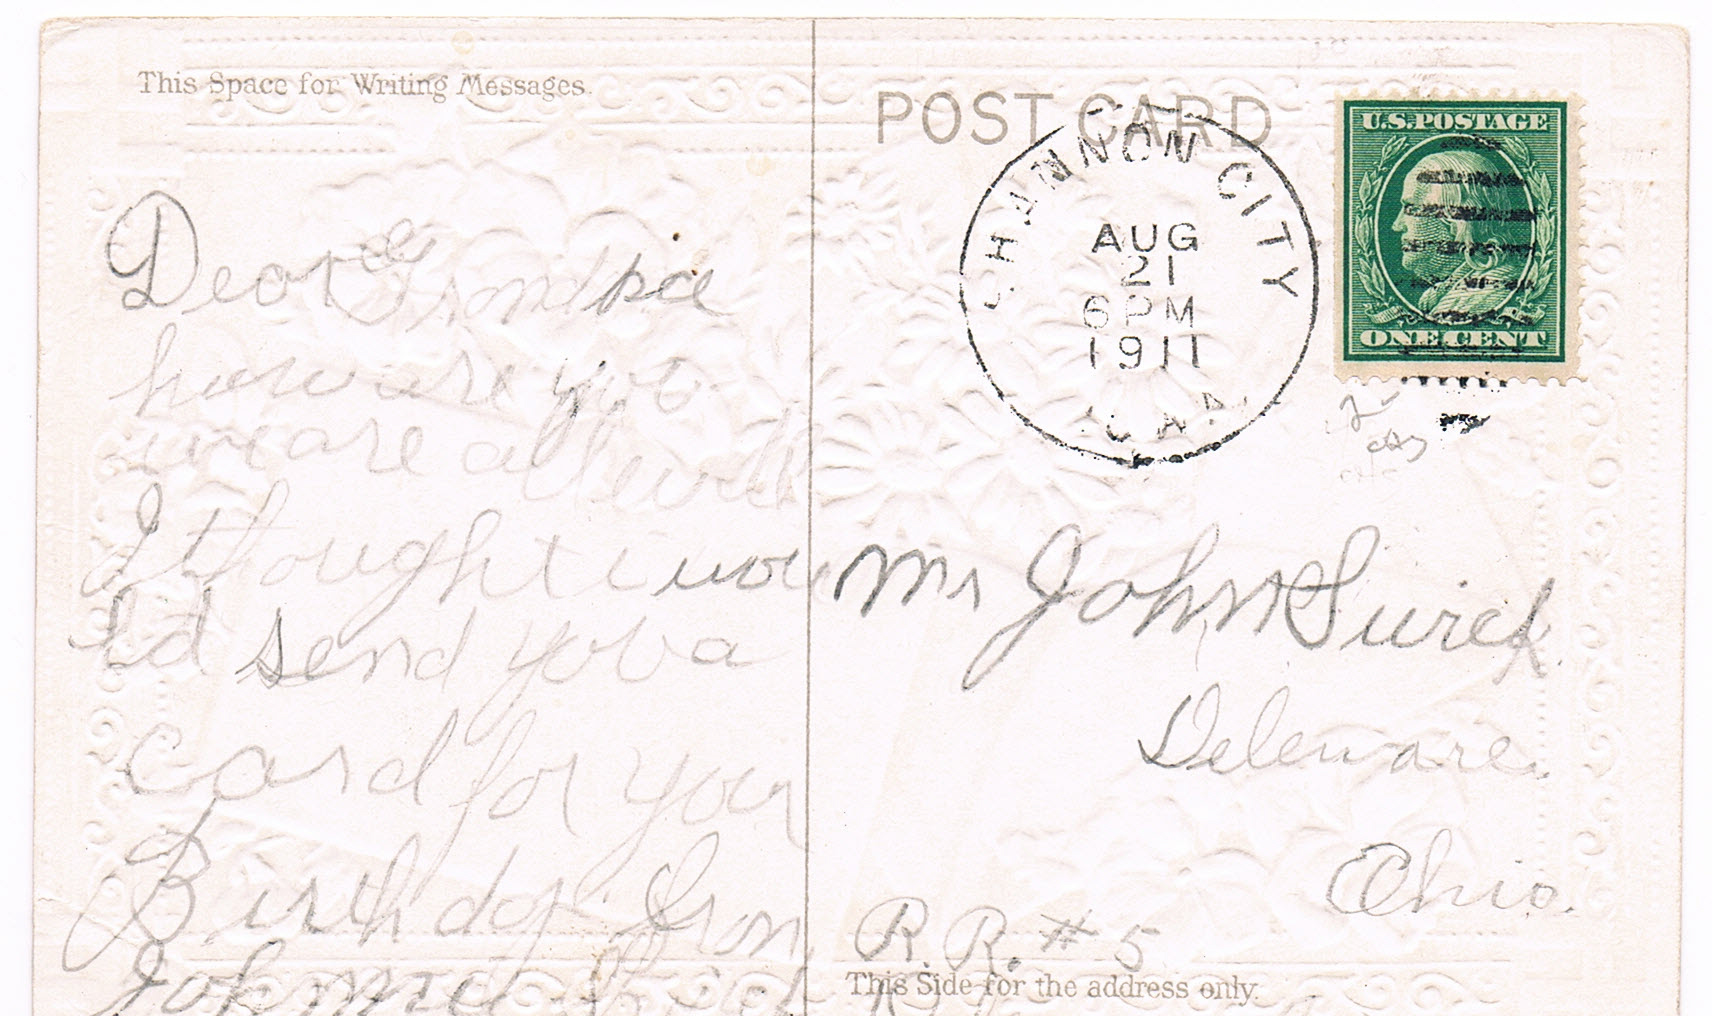 This Space for Writing Messages.
Dear Grandpa
how are you
we are all well
I thought i wou
ld send you a
card for your
Birthday from
Johnnie
POST CARD
SHANNON CITY
AUG
21
6 PM
1911
U.S. POSTAGE
ONE CENT
Mr John Swick
Deleware.
Ohio.
R. R. # 5
This Side for the address only.